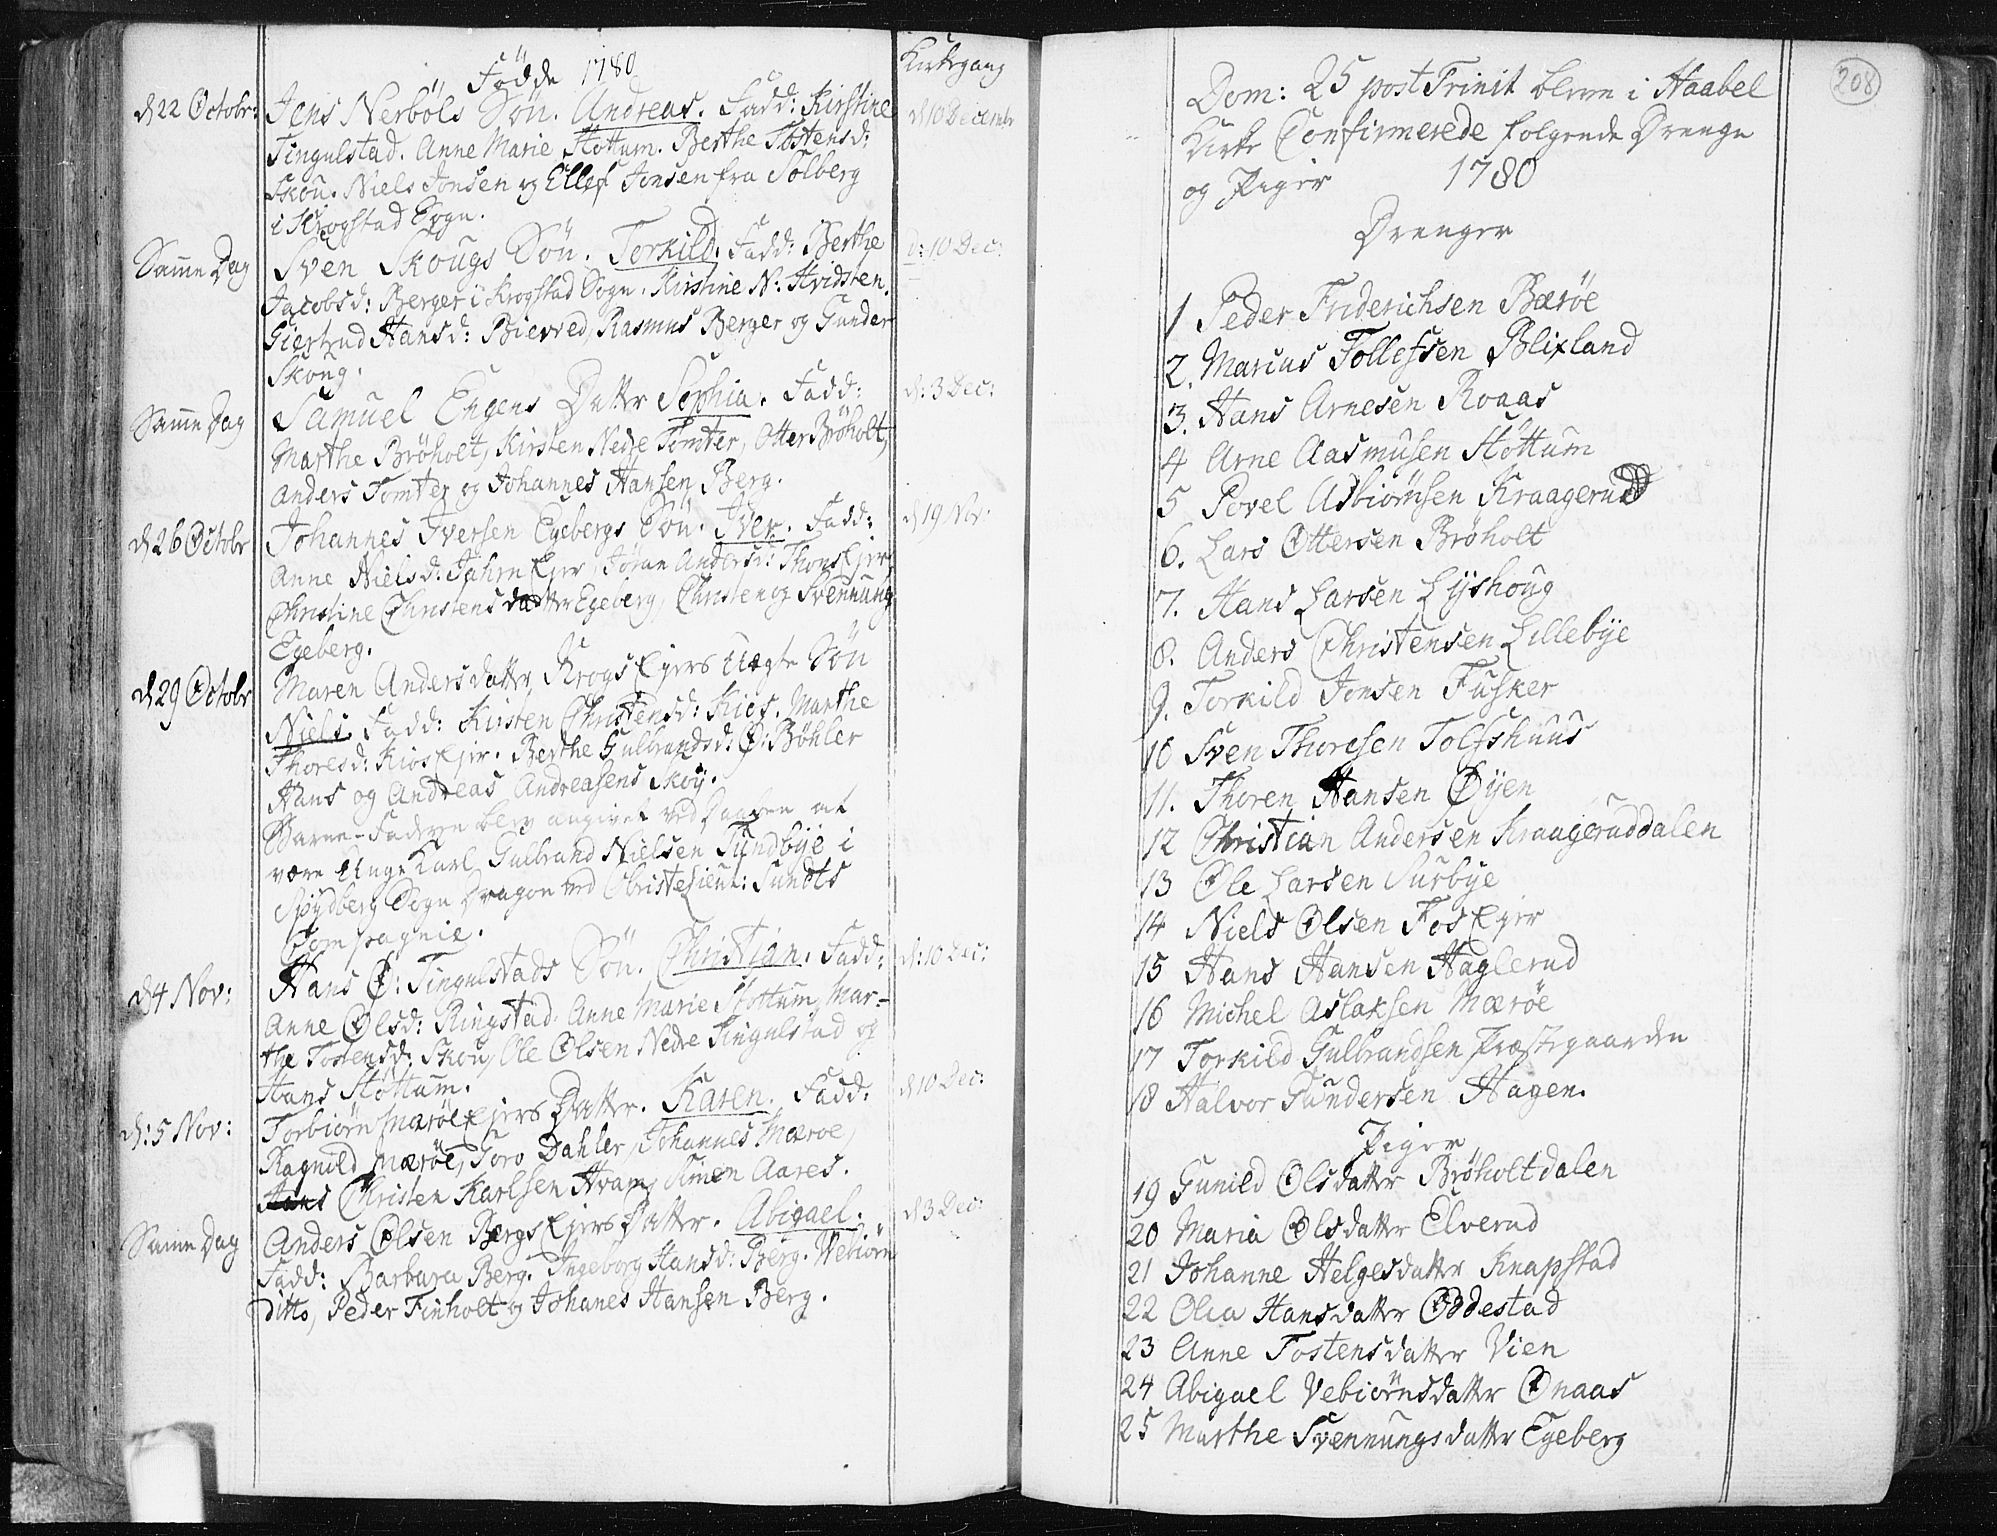 Födde 1780
Kirkegang
d 22 Octobr: Jens Nerböls Sön. Andreas. Fadd: Kirstine
d 10 Decembr
Tingulstad. Anne Marie Støttum. Berthe Tostensd:
Skou. Niels Jonsen og Ellef Jonsen fra Solberg
i Krogstad Sogn.
Same Dag Sven Skougs Sön. Torkild. Fadd: Berthe
d: 10 Dec:
Jacobsd: Berger i Krogstad Sogn. Kirstine N: Hvidsten.
Giertrud Hansd: Bierred, Rasmus Berger og Gunder
Skoug.
Same Dag Samuel Engens Datter Sophia. Fadd:
d: 3 Dec:
Marthe Brøholt, Kirsten Nedre Tomter, Otter Brøholt,
Anders Tomter og Johannes Hansen Berg.
d 26 Octobr Johannes Iversen Egebergs Sön. Iver. Fadd:
d 19 Nov.
Anne Nielsd: Jahren Ejer, Jöran Andersd: Thons Ejer
Christine Christensdatter Egeberg, Christen og Svennung
Egeberg.
d 29 Octobr Maren Andersdatter, Krogs Ejers Uægte Sön
Niels. Fadd: Kirsten Christensd: Kios. Marthe
Thoresd: Kios Ejer. Berthe Gulbrandsd: Ø: Bøhler
Hans og Andreas Andreasens Skoy.
Barne-Faderen blev angivet ved Daaben at
være Unge Karl Gulbrand Nielsen Sundbye i
Spydberg Sogn Dragon ved Lieut: Sundts
Compagnie.
d 4 Nov: Hans Ø: Tingulstads Sön. Christian. Fadd:
d: 10 Dec:
Anne Olsd: Ringstad. Anne Marie Støttum, Mar-
the Tostensd: Skou, Ole Olsen Nedre Tingulstad og
Hans Støttum.
d: 5 Nov: Torbiörn Mæröe Ejers Datter. Karen. Fadd:
d 10 Dec:
Ragnild Mæröe, Toro Dahler, Johannes Mæroe,
Christen Karlsen Hvam, Simen Aares.
Same Dag Anders Olsen Bergs Ejers Datter. Abigael.
d 3 Dec:
Fadd: Barbara Berg. Ingeborg Hansd: Berg. Vebiörn
Ditto, Peder Finholt og Johanes Hansen Berg.
208
Dom: 25 post Trinit bleve i Haabel
Kirke Confirmerede følgende Drenge
og Piger 1780
Drenger
1 Peder Friderichsen Bærøe
2. Marcus Tollefsen Blixland
3. Hans Arnesen Roaas
4 Arne Aasmusen Støttum
5 Povel Asbiörnsen Kraagerud
6. Lars Ottersen Brøholt
7. Hans Larsen Lyshoug
8. Anders Christensen Lillebye
9. Torkild Jonsen Fusker
10 Sven Thoresen Tolfshuus
11. Thoren Hansen Øyen
12 Christian Andersen Kraageruddalen
13 Ole Larsen Surbye
14 Niels Olsen Fos Ejer
15 Hans Hansen Haglerud
16 Michel Aslaksen Mærøe
17 Torkild Gulbrandsen Præstegaarden
18 Halvor Gundersen Hagen.
Piger
19 Gunild Olsdatter Brøholtdalen
20 Maria Olsdatter Elverud
21 Johanne Helgesdatter Knapstad
22 Olea Hansdatter Oddestad
23 Anne Tostensdatter Vien
24 Abigael Vebiörnsdatter Onaas
25 Marthe Svennungsdatter Egeberg